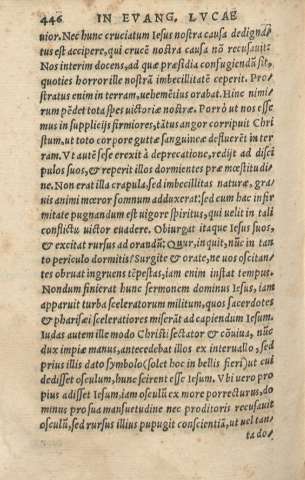 446 IN EVANG. LVCAE
uior. Nec hunc cruciatum Iesus nostra causa dedigna/
tus est accipere, qui crucē nostra causa nō recusauit.
Nos interim docens, ad quæ præsidia confugiendū sit,
quoties horror ille nostrā imbecillitatē ceperit. Pro/
stratus enim in terram, uehemētius orabat. Hinc nimi/
rum pēdet tota spes uictoriæ nostræ. Porrò ut nos esse
mus in supplicijs firmiores, tātus angor corripuit Chri
stum, ut toto corpore guttæ sanguineæ defluerēt in ter
ram. Vt autē sese erexit à deprecatione, redijt ad disci
pulos suos, & reperit illos dormientes præ mœstitudi=
ne. Non erat illa crapula, sed imbecillitas naturæ, gra/
uis animi mœror somnum adduxerat: sed cum hac infir
mitate pugnandum est uigore spiritus, qui uelit in tali
conflictu uictor euadere. Obiurgat itaque Iesus suos,
& excitat rursus ad orandū: Quur, inquit, nūc in tan
to periculo dormitis? Surgite & orate, ne uos oscitan/
tes obruat ingruens tēpestas, iam enim instat tempus.
Nondum finierat hunc sermonem dominus Iesus, iam
apparuit turba sceleratorum militum, quos sacerdotes
& pharisæi sceleratiores miserāt ad capiendum Iesum.
Iudas autem ille modo Christi sectator & cōuiua, nūc
dux impiæ manus, antecedebat illos ex interuallo, sed
prius illis dato symbolo (solet hoc in bellis fieri) ut cui
dedisset osculum, hunc scirent esse Iesum. Vbi uero pro
pius adisset Iesum, iam osculū ex more porrecturus, do
minus pro sua mansuetudine nec proditoris recusauit
osculū, sed rursus illius pupugit conscientiā, ut uel tan/
ta do/